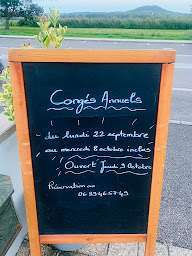 Congés Annuels
du lundi 22 septembre
au mercredi 8 octobre inclus
Ouvert Jeudi 9 Octobre
Réservation au
06.89.46.57.49